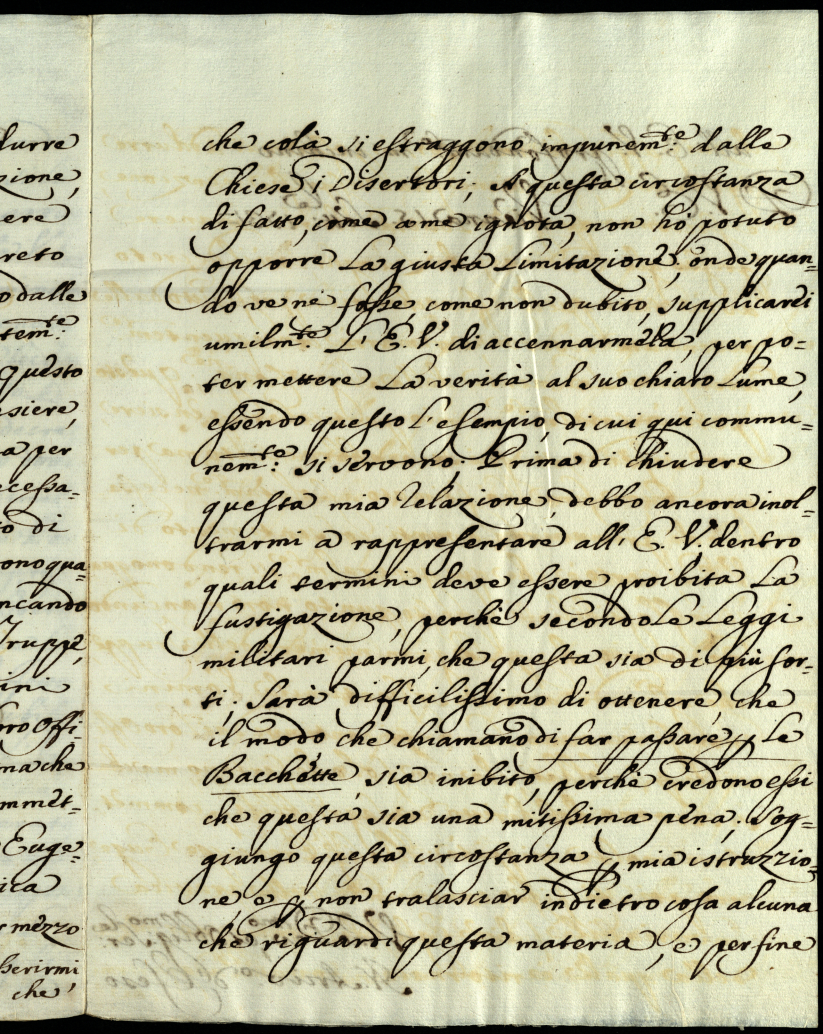 durre
zione,
ere
reto
o dalle
tem:te
questo
esiere,
a per
ecessa=
to di
ono qua=
ncando
Truppe,
ini
oro Offi=
ma che
mmet=
Euge=
ica
r mezzo
serirmi
che
che colà si estraggono impunem:te dalle
Chiese i Disertori; A questa circostanza
di fatto, come a me ignota, non hò potuto
opporre la giusta limitazione, onde quan=
do ve ne fosse, come non dubito, supplicarei
umilm:te l'E. V. di accennarmela, per po=
ter mettere la verità al suo chiaro lume,
essendo questo l'esempio, di cui qui commu=
nem:te si servono. Prima di chiudere
questa mia relazione, debbo ancora inol=
trarmi a rappresentare all'E. V. dentro
quali termini deve essere proibita la
fustigazione, perchè secondo le Leggi
militari parmi, che questa sia di più for=
ti. Sarà difficilissimo di ottenere, che
il modo che chiamano di far passare p le
Bacchette, sia inibito, perchè credono essi
che questa sia una mitissima pena. Sog=
giungo questa circostanza p mia istruzzio=
ne, e p non tralasciar indietro cosa alcuna
che riguardi questa materia, e per fine